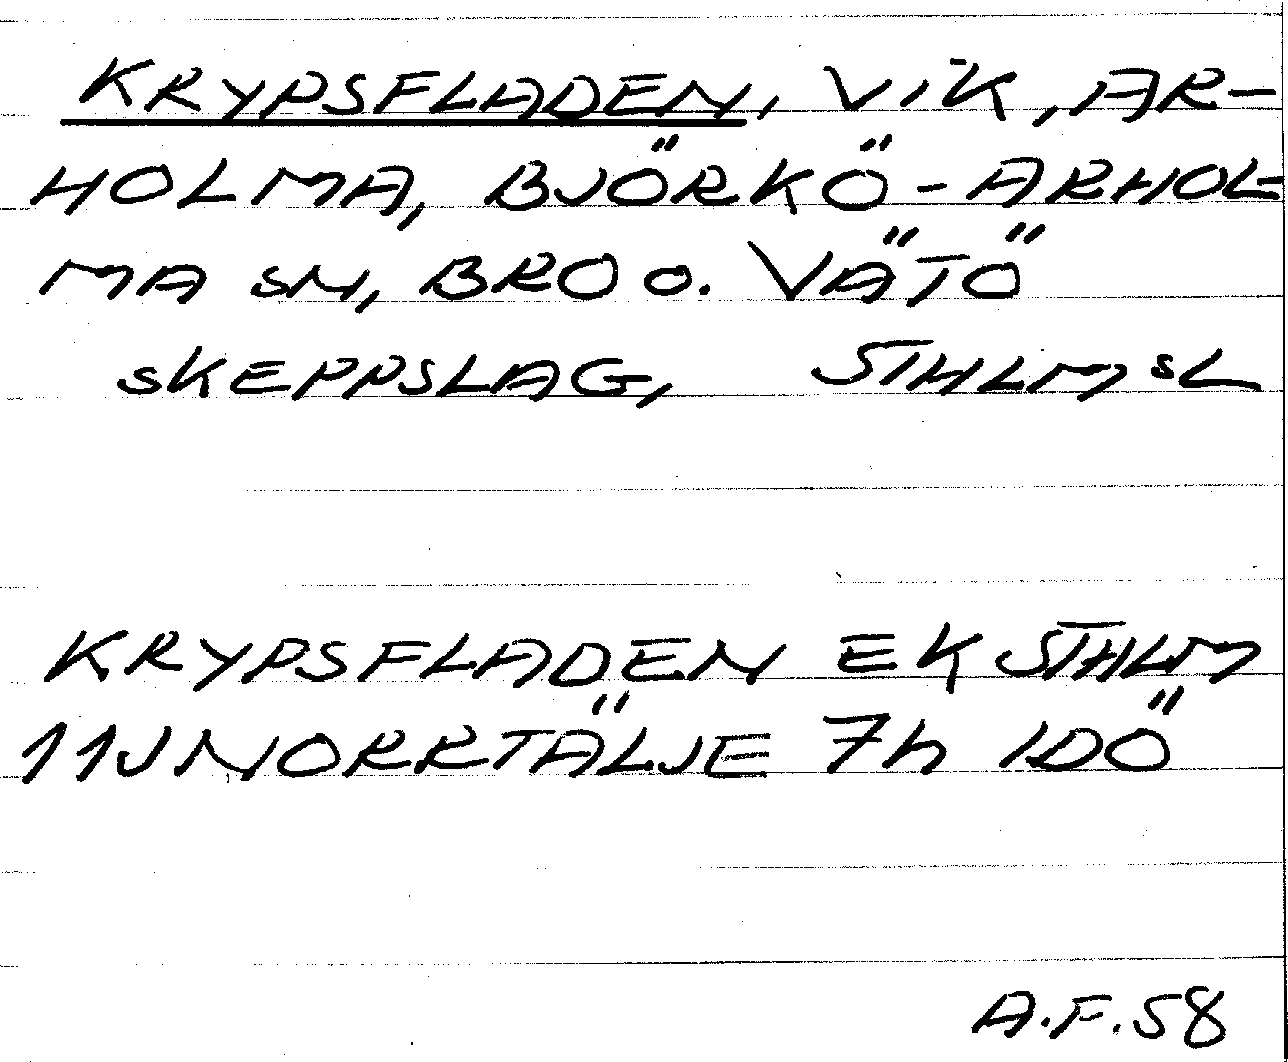 KRYPSFLADEN, VIK, AR-
HOLMA, BJÖRKÖ-ARHOL-
MA SN, BRO O. VÄTÖ
SKEPPSLAG, STHLMSL
KRYPSFLADEN EK STHLM
11J NORRTÄLJE 7h IDÖ
A.F.58